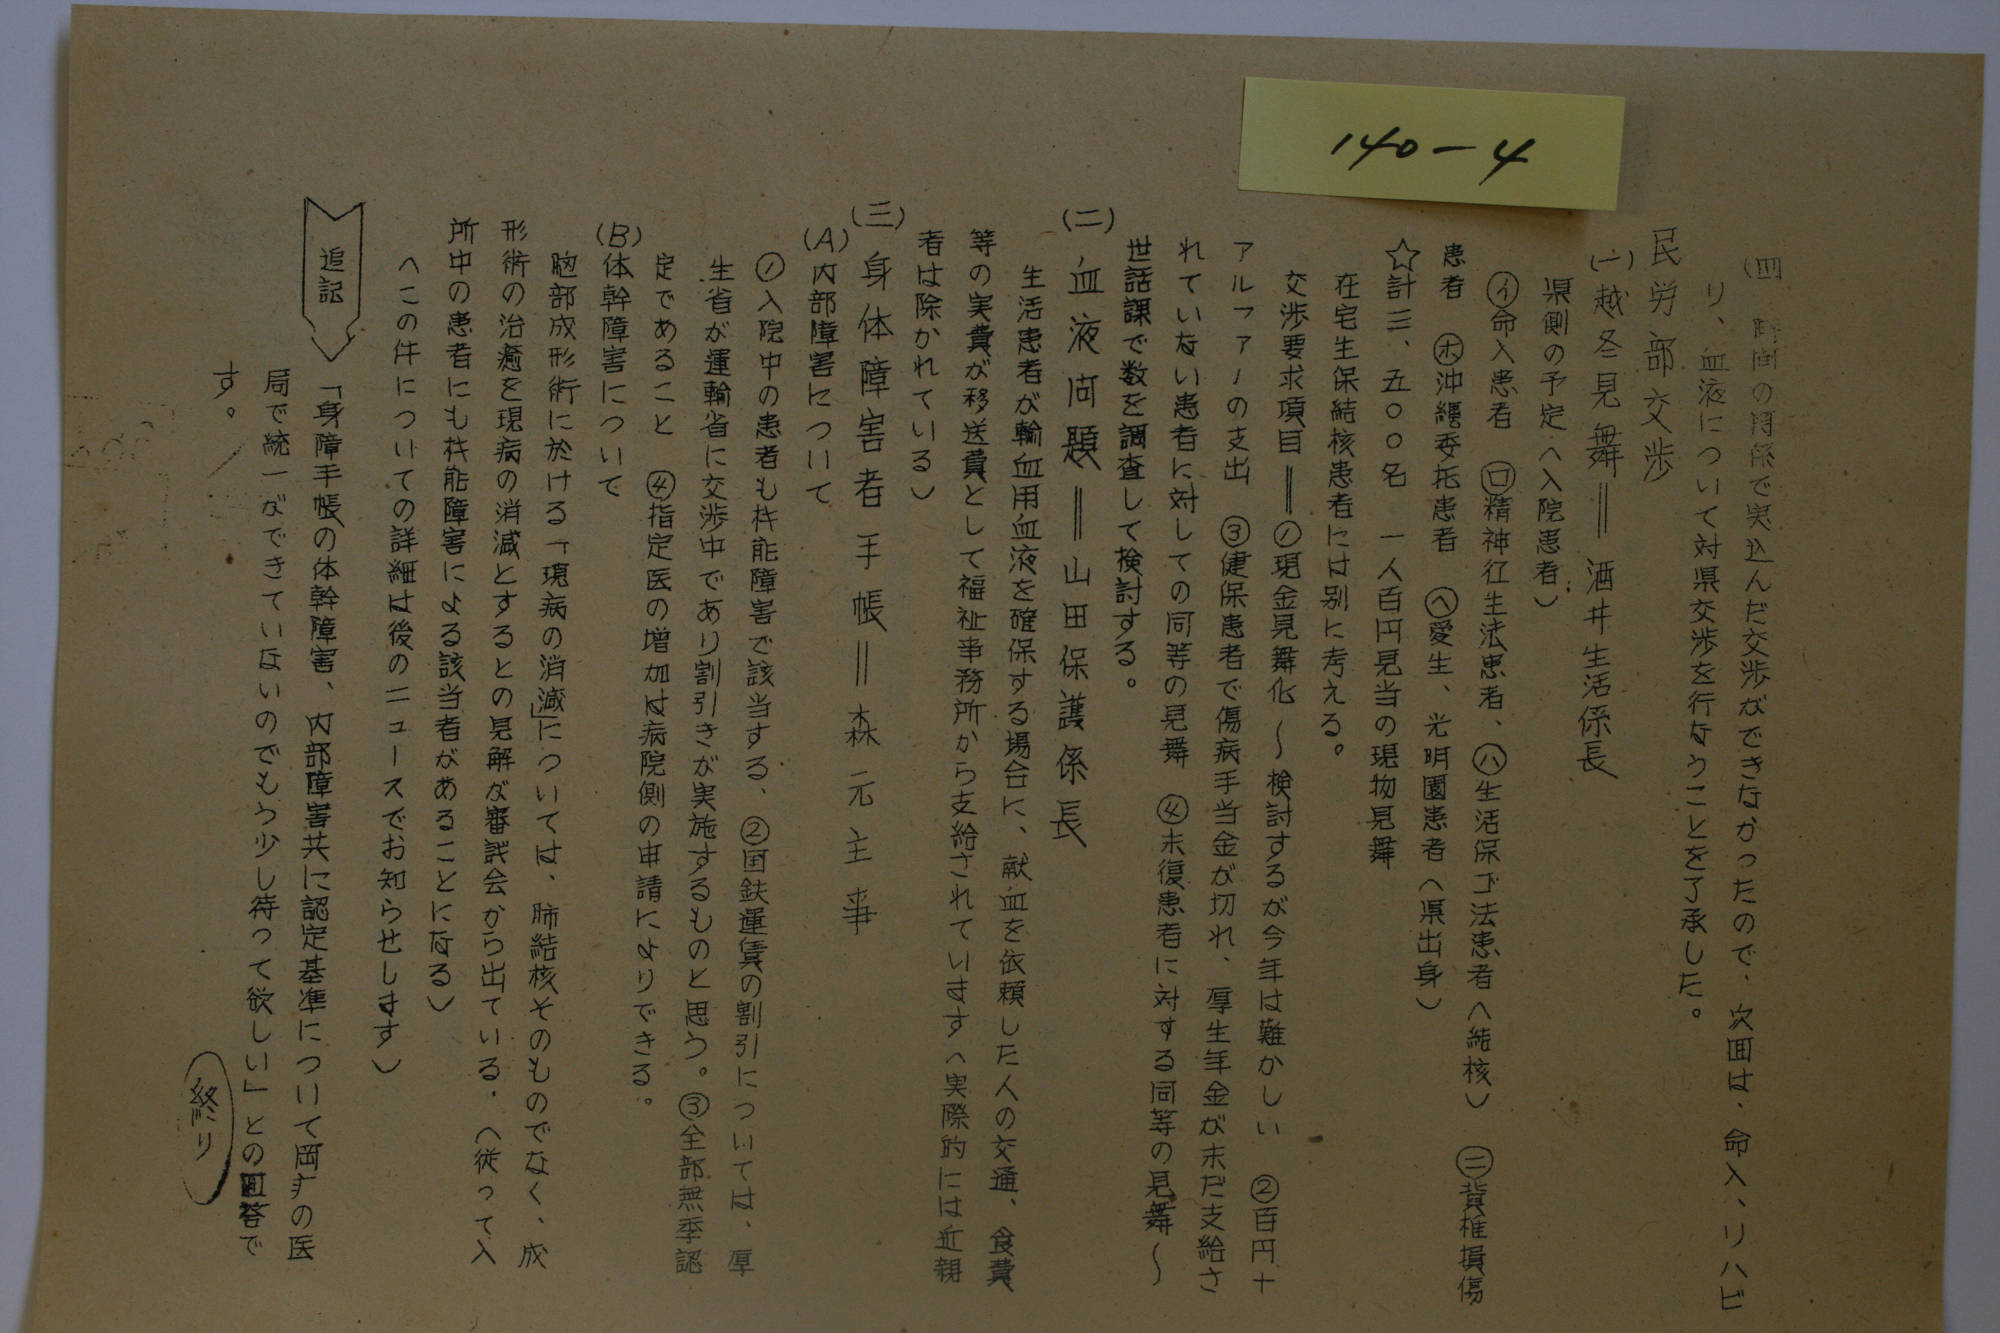 140-4
(四) 時間の関係で突込んだ交渉ができなかったので、次回は、命入、リハビ
リ、血液について対県交渉を行なうことを了承した。
民労部交渉
(一)越冬見舞＝酒井生活係長
県側の予定(入院患者)
㋑命入患者 ㋺精神衛生法患者、㋩生活保ゴ法患者(結核) ㊁背椎損傷
患者 ㋭沖縄委托患者 ㋬愛生、光明園患者(県出身)
☆計三、五〇〇名 一人百円見当の現物見舞
在宅生保結核患者には別に考える。
交渉要求項目＝①現金見舞化～検討するが今年は難かしい ②百円＋
アルファーの支出 ③健保患者で傷病手当金が切れ、厚生年金が未だ支給さ
れていない患者に対しての同等の見舞 ④未復患者に対する同等の見舞～
世話課で数を調査して検討する。
(二)血液問題＝山田保護係長
生活患者が輸血用血液を確保する場合に、献血を依頼した人の交通、食費
等の実費が移送費として福祉事務所から支給されています(実際的には近親
者は除かれている)
(三)身体障害者手帳＝森元主事
(A)内部障害について
①入院中の患者も杙能障害で該当する、②国鉄運賃の割引については、厚
生省が運輸省に交渉中であり割引きが実施するものと思う。③全部無季認
定であること ④指定医の増加は病院側の申請によりできる。
(B)体幹障害について
胸部成形術に於ける「現病の消滅」については、肺結核そのものでなく、成
形術の治癒を現病の消滅とするとの見解が審議会から出ている。(従って入
所中の患者にも杙能障害による該当者があることになる)
(この件についての詳細は後のニュースでお知らせします)
追記
「身障手帳の体幹障害、内部障害共に認定基準について岡大の医
局で統一ができていないのでもう少し待って欲しい」との回答で
す。
終り